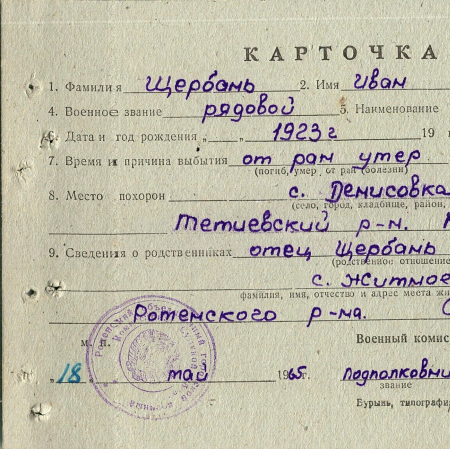 КАРТОЧКА
1. Фамилия Щербань 2. Имя Иван
4. Военное звание рядовой 5. Наименование
6. Дата и год рождения „ “ 1923 г 19
7. Время и причина выбытия от ран умер
(погиб, умер от ран (болезни)
8. Место похорон с. Денисовка
(село, город, кладбище, район,
Тетиевский р-н.
9. Сведения о родственниках отец Щербань
(родственное отношение
с. Житное
фамилия, имя, отчество и адрес места жи
Роменского р-на.
м. п. Военный комис
„18 май 1965г. подполковни
звание
Бурынь, типограф